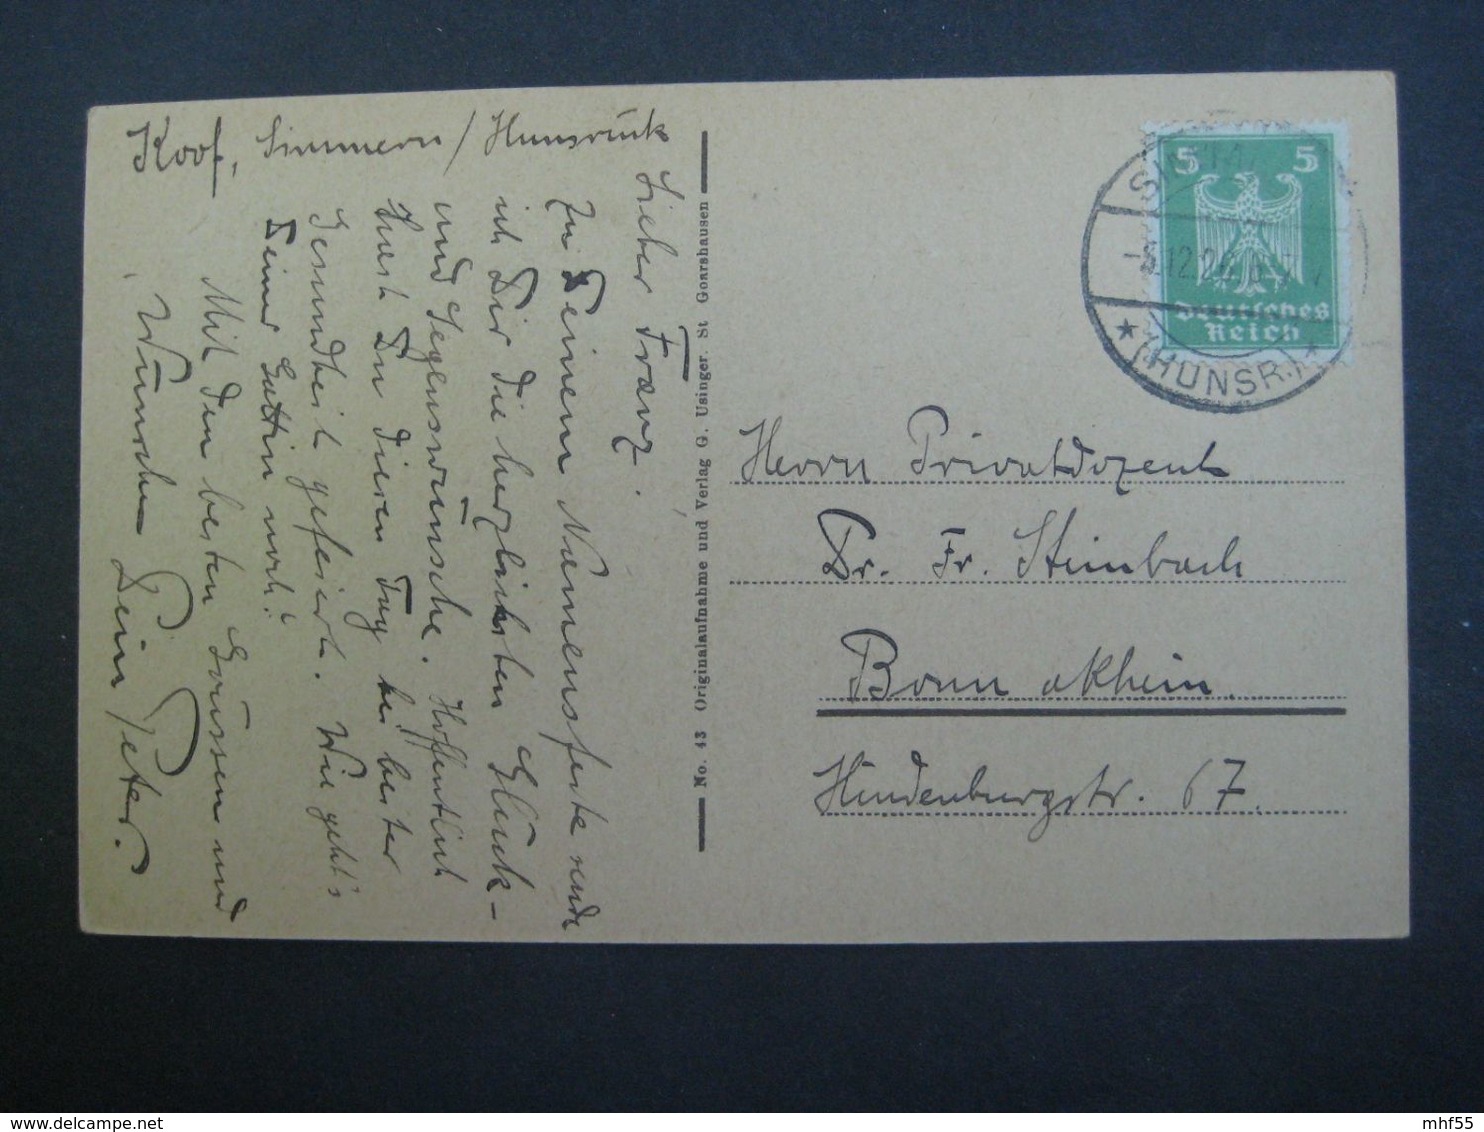 Koof, Simmern / Hunsrück
Lieber Franz.
Zu Deinem Namensfeste sende
ich Dir die herzlichsten Glück-
und Segenswünsche. Hoffentlich
hast Du diesen Tag bei bester
Gesundheit gefeiert. Wie geht's
Deiner Gattin noch?
Mit den besten Grüssen und
Wünschen
Dein Peter.
No. 43 Originalaufnahme und Verlag G. Usinger. St Goarshausen
5 5
Deutsches
Reich
12.26
★ (HUNSR.) ★
Herrn Privatdozent
Dr. Fr. Steinbach
Bonn a Rhein.
Hindenburgstr. 67.
mhf55